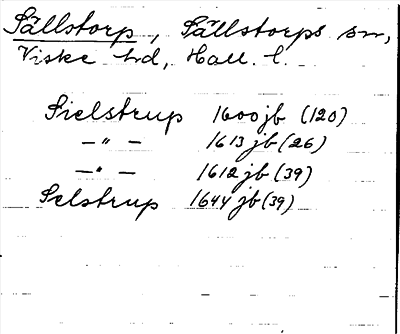 Sällstorp, Sällstorps sn,
Viske hd, Hall. l.
Sielstrup 1600 jb (120)
–"– 1613 jb (26)
–"– 1612 jb (39)
Selstrup 1644 jb (39)